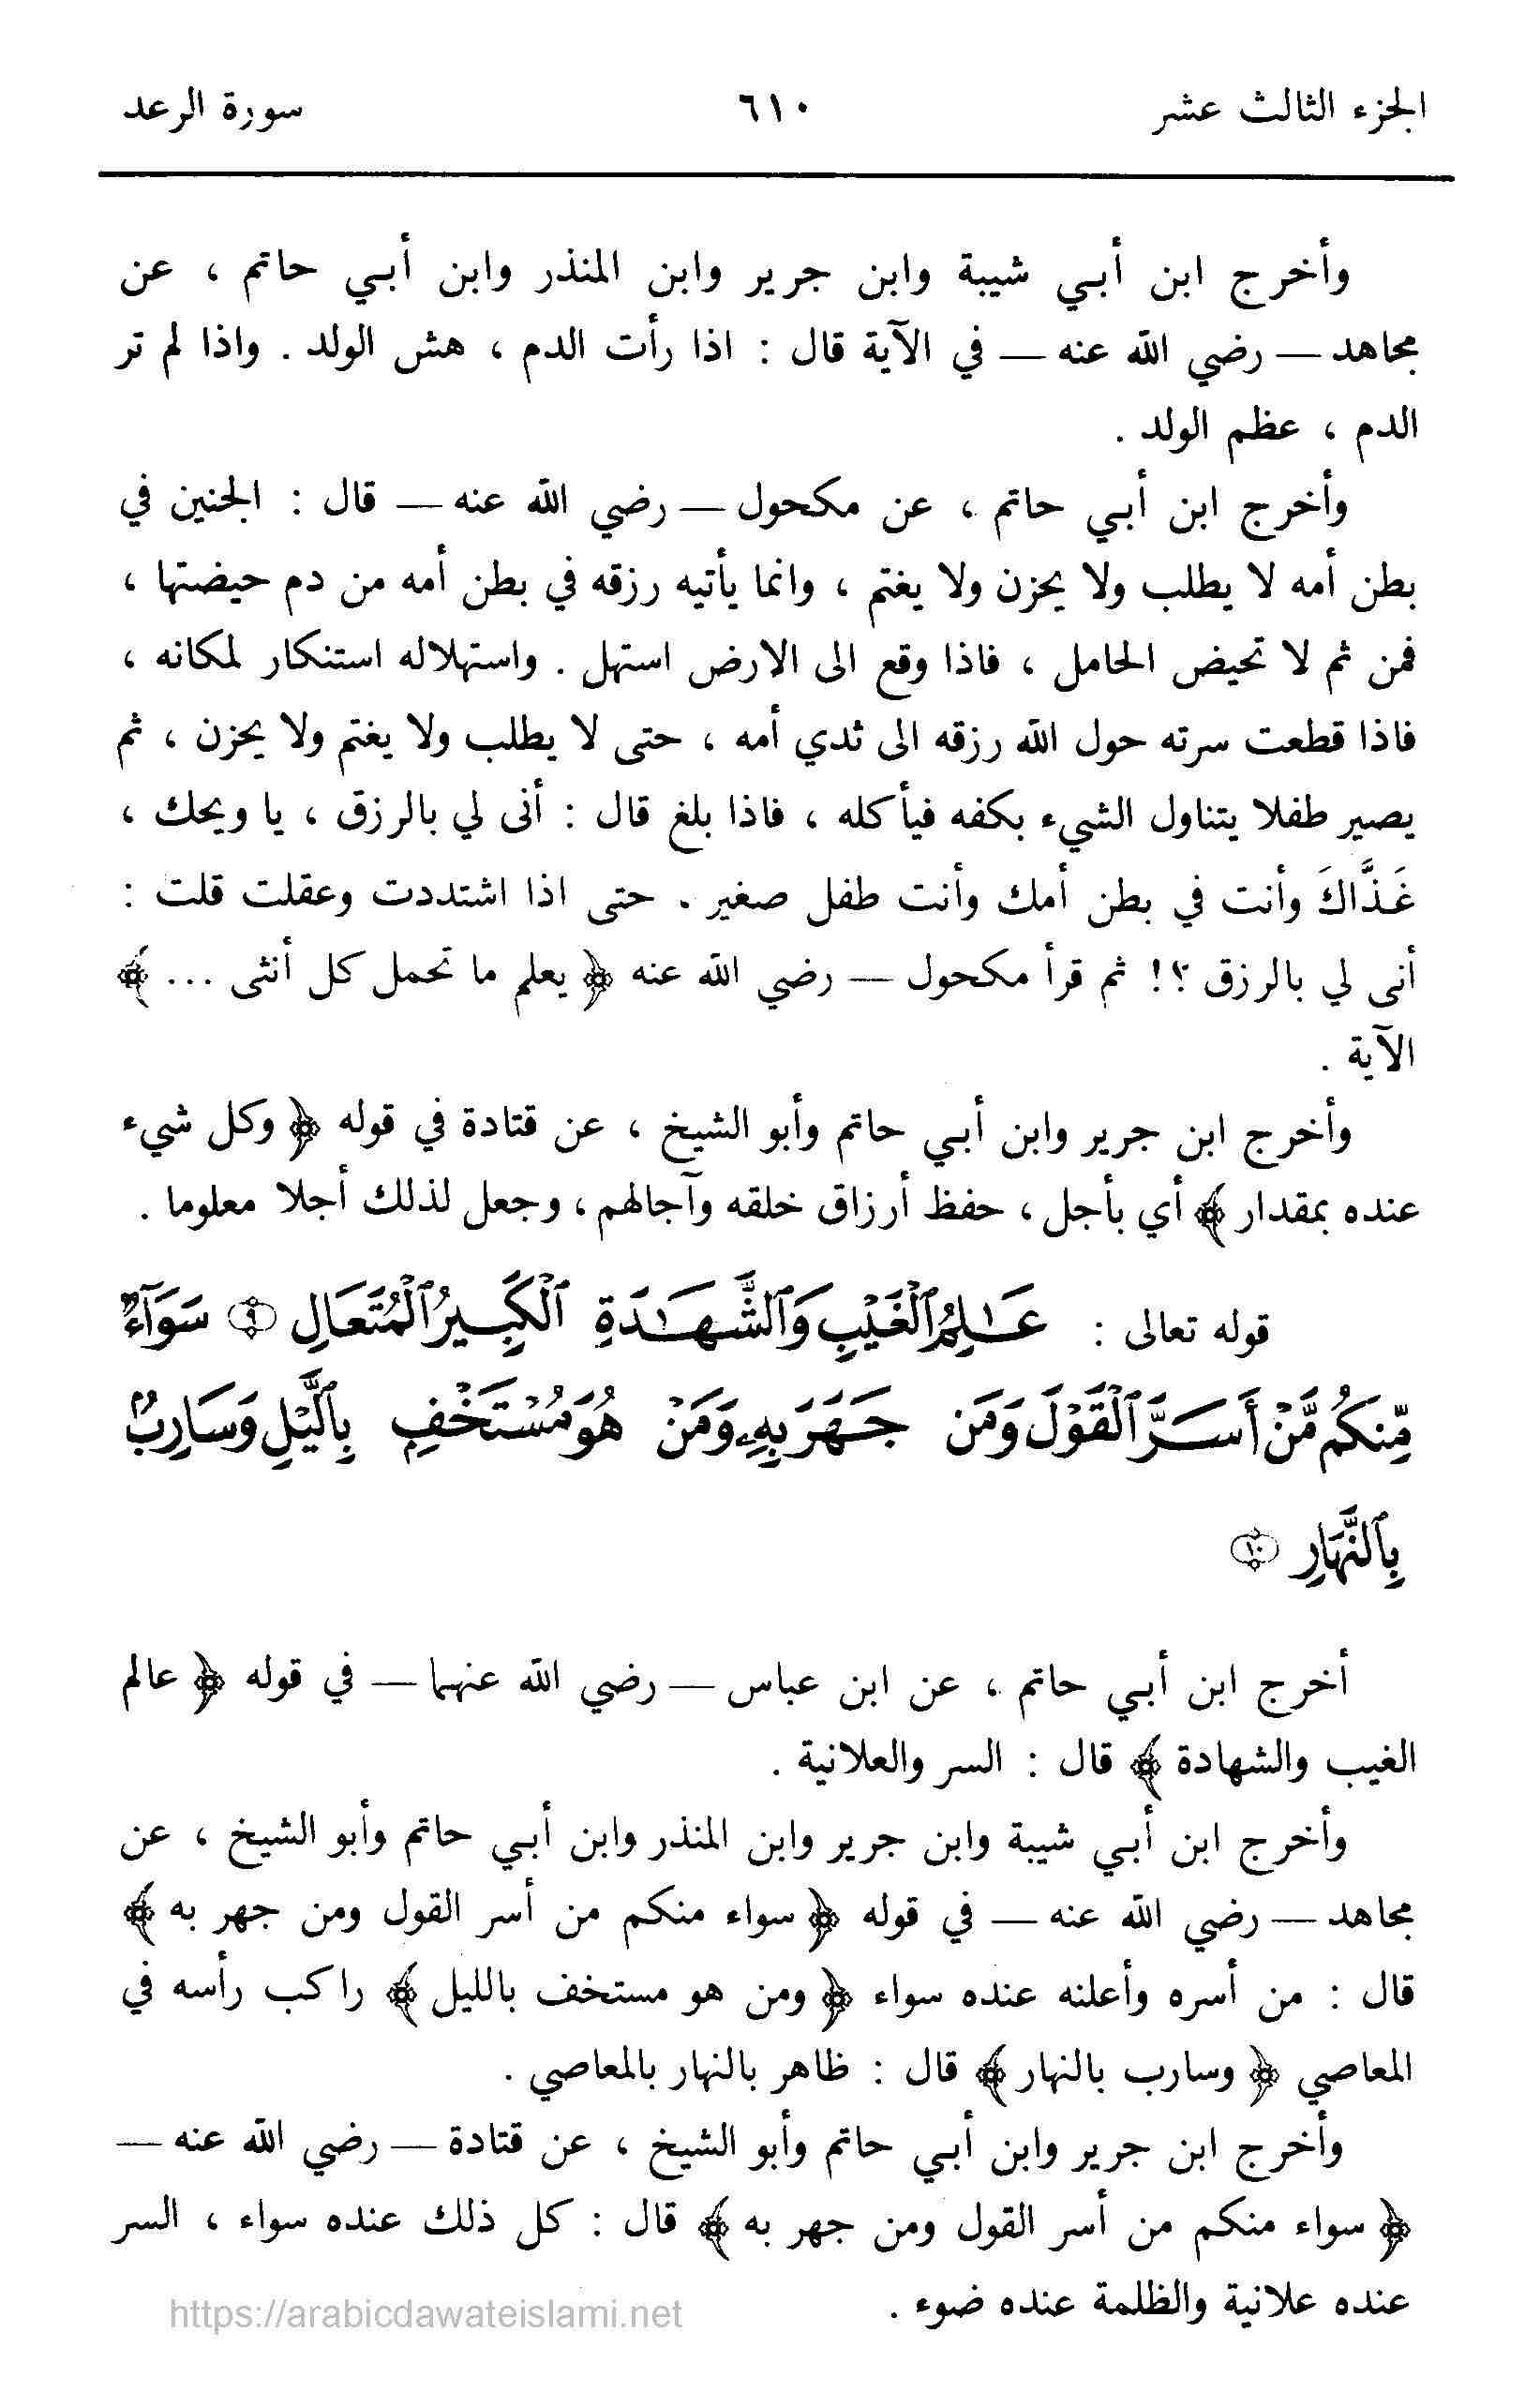 الجزء الثالث عشر ٦١٠ سورة الرعد
وأخرج ابن أبي شيبة وابن جرير وابن المنذر وابن أبي حاتم ، عن
مجاهد — رضي الله عنه — في الآية قال : اذا رأت الدم ، هش الولد . واذا لم تر
الدم ، عظم الولد .
وأخرج ابن أبي حاتم ، عن مكحول — رضي الله عنه — قال : الجنين في
بطن أمه لا يطلب ولا يحزن ولا يغتم ، وانما يأتيه رزقه في بطن أمه من دم حيضتها ،
فمن ثم لا تحيض الحامل ، فاذا وقع الى الارض استهل . واستهلاله استنكار لمكانه ،
فاذا قطعت سرته حول الله رزقه الى ثدي أمه ، حتى لا يطلب ولا يغتم ولا يحزن ، ثم
يصير طفلا يتناول الشيء بكفه فيأكله ، فاذا بلغ قال : أنى لي بالرزق ، يا ويحك ،
غَذَّاكَ وأنت في بطن أمك وأنت طفل صغير . حتى اذا اشتددت وعقلت قلت :
أنى لي بالرزق ؟! ثم قرأ مكحول — رضي الله عنه ﴿ يعلم ما تحمل كل أنثى ... ﴾
الآية .
وأخرج ابن جرير وابن أبي حاتم وأبو الشيخ ، عن قتادة في قوله ﴿ وكل شيء
عنده بمقدار ﴾ أي بأجل ، حفظ أرزاق خلقه وآجالهم ، وجعل لذلك أجلا معلوما .
قوله تعالى : عَـٰلِمُ ٱلْغَيْبِ وَٱلشَّهَـٰدَةِ ٱلْكَبِيرُ ٱلْمُتَعَالِ ۝٩ سَوَآءٌ
مِّنكُم مَّنْ أَسَرَّ ٱلْقَوْلَ وَمَن جَهَرَ بِهِۦ وَمَنْ هُوَ مُسْتَخْفٍ بِٱلَّيْلِ وَسَارِبٌۢ
بِٱلنَّهَارِ ۝١٠
أخرج ابن أبي حاتم ، عن ابن عباس — رضي الله عنهما — في قوله ﴿ عالم
الغيب والشهادة ﴾ قال : السر والعلانية .
وأخرج ابن أبي شيبة وابن جرير وابن المنذر وابن أبي حاتم وأبو الشيخ ، عن
مجاهد — رضي الله عنه — في قوله ﴿ سواء منكم من أسر القول ومن جهر به ﴾
قال : من أسره وأعلنه عنده سواء ﴿ ومن هو مستخف بالليل ﴾ راكب رأسه في
المعاصي ﴿ وسارب بالنهار ﴾ قال : ظاهر بالنهار بالمعاصي .
وأخرج ابن جرير وابن أبي حاتم وأبو الشيخ ، عن قتادة — رضي الله عنه —
﴿ سواء منكم من أسر القول ومن جهر به ﴾ قال : كل ذلك عنده سواء ، السر
عنده علانية والظلمة عنده ضوء .
https://arabicdawateislami.net